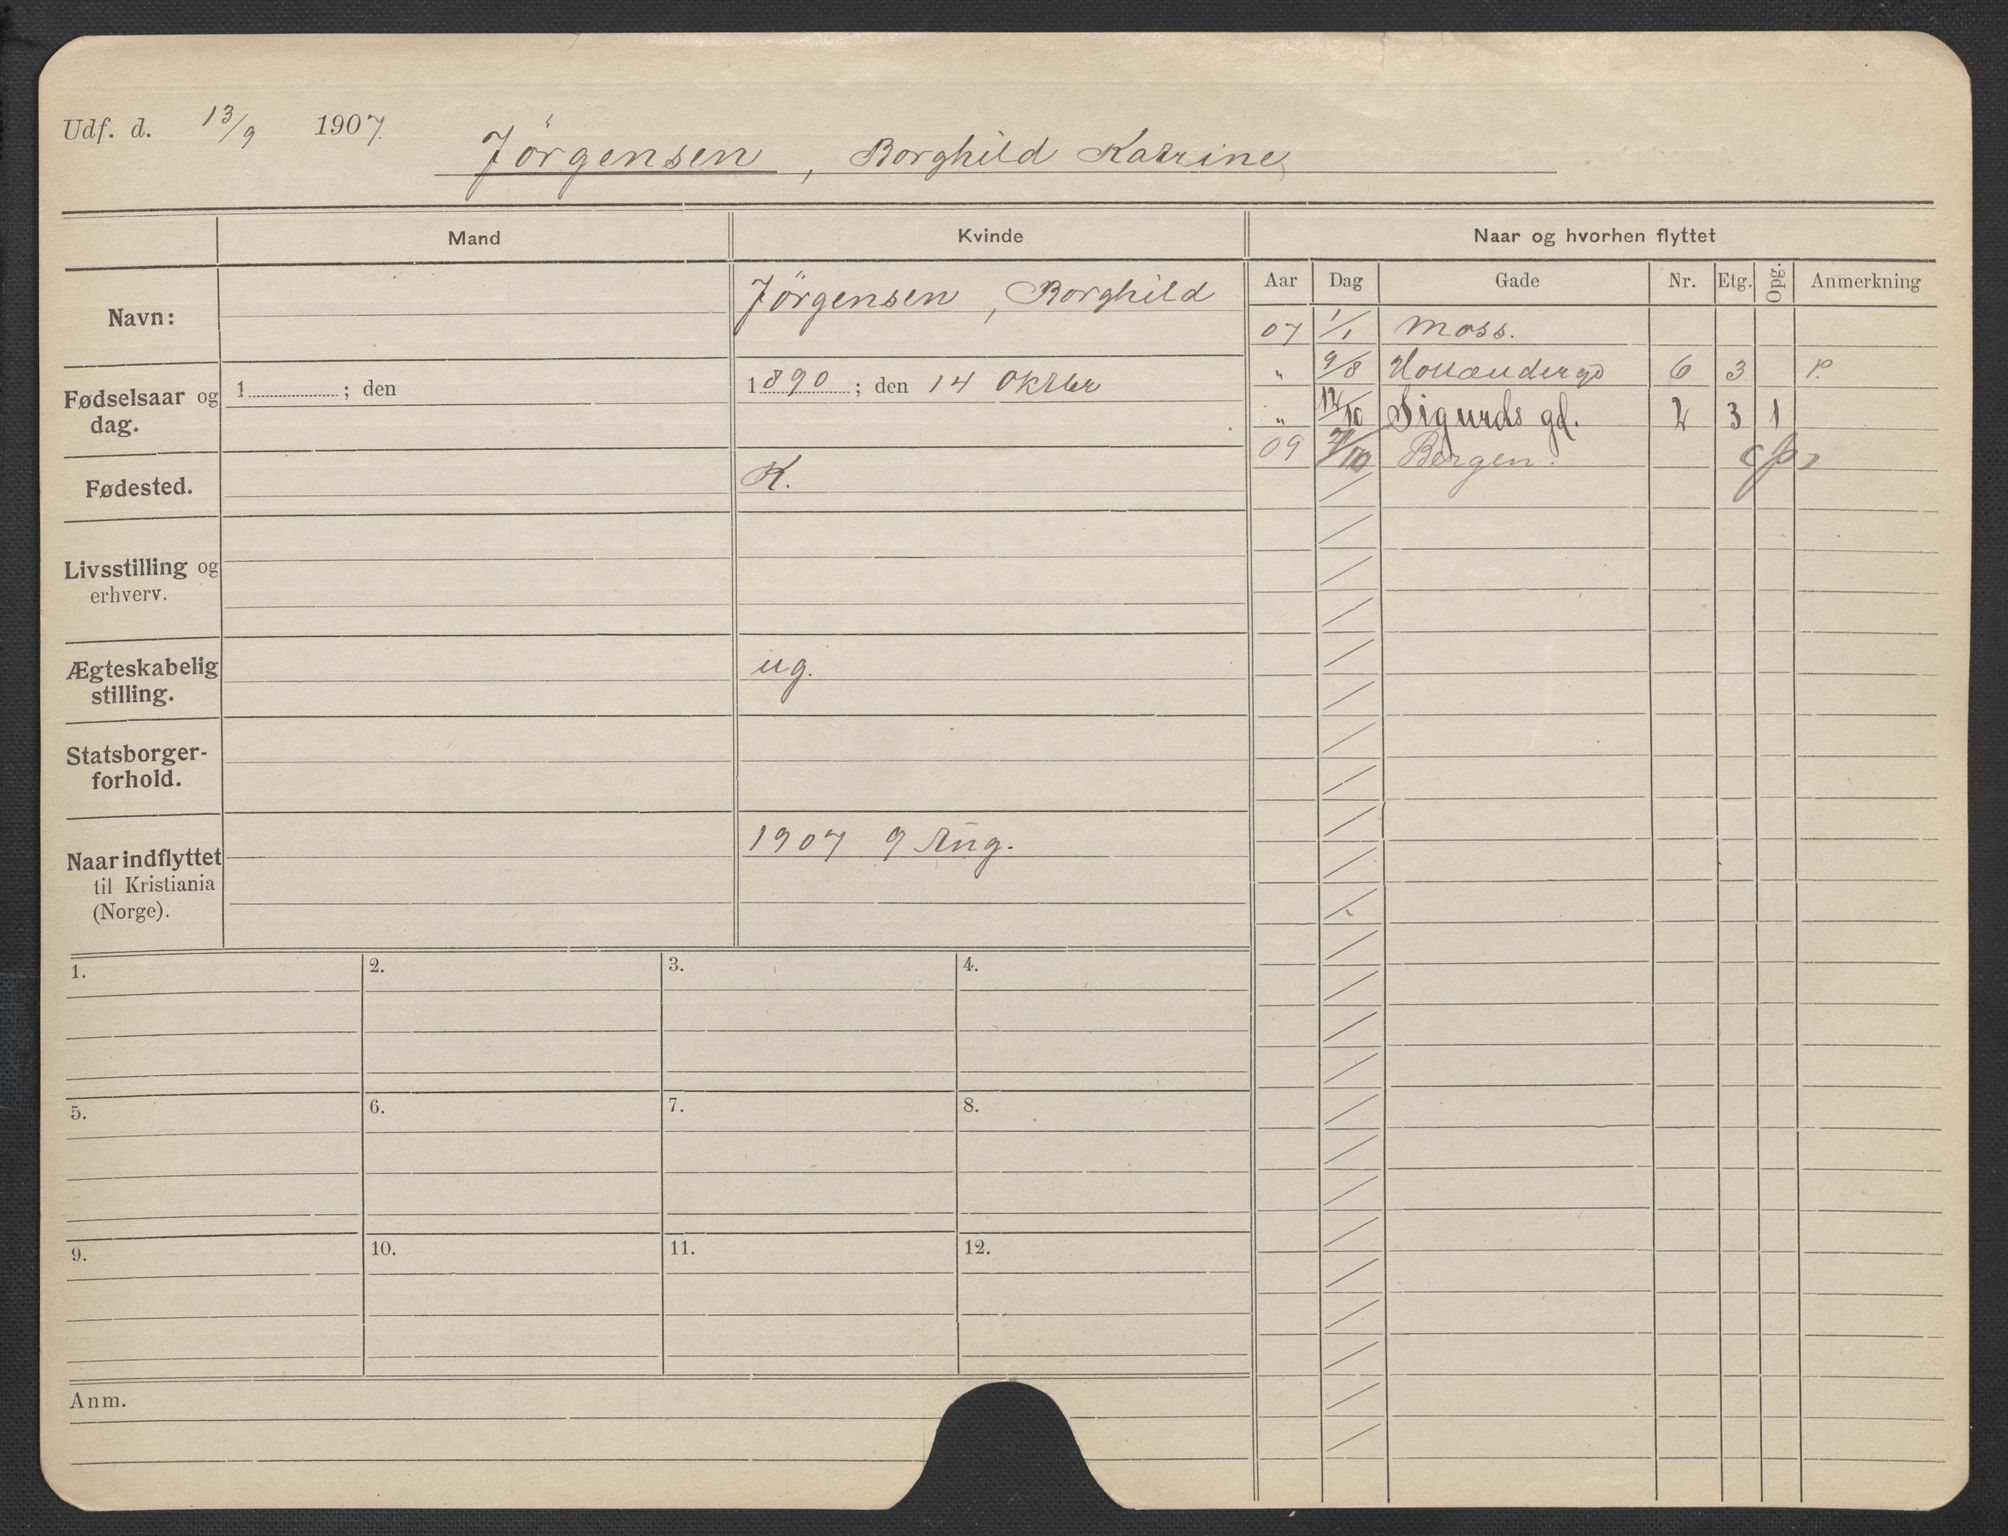 Udf. d. 13/9 1907
Jörgensen, Borghild Katrine
Mand Kvinde Naar og hvorhen flyttet
Aar Dag Gade Nr. Etg. Opg. Anmerkning
Navn: Jörgensen, Borghild
Fødselsaar og dag. 1 ; den 1890 ; den 14 Oktber
Fødested. K.
Livsstilling og erhverv.
Ægteskabelig stilling. ug.
Statsborger-forhold.
Naar indflyttet til Kristiania (Norge). 1907 9 Aug.
07 1/1 Moss.
" 9/8 Hollændergd 6 3 P.
" 12/10 Sigurds gd. 2 3 1
09 /10 Bergen.
1. 2. 3. 4.
5. 6. 7. 8.
9. 10. 11. 12.
Anm.